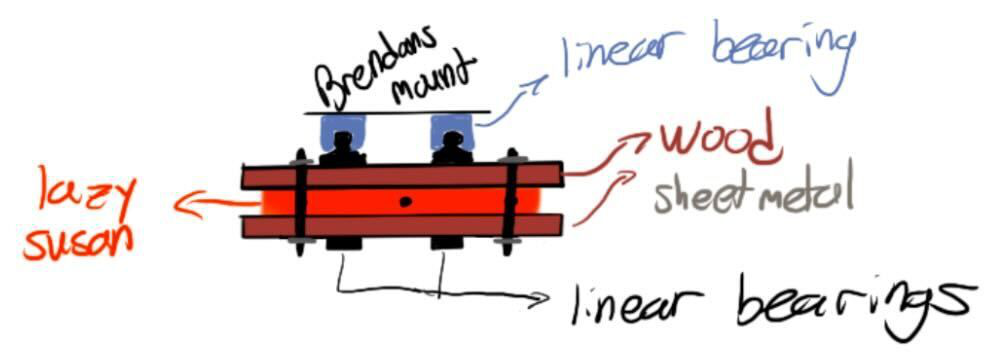 Brendans
mount
linear bearing
wood
sheet metal
lazy
susan
linear bearings